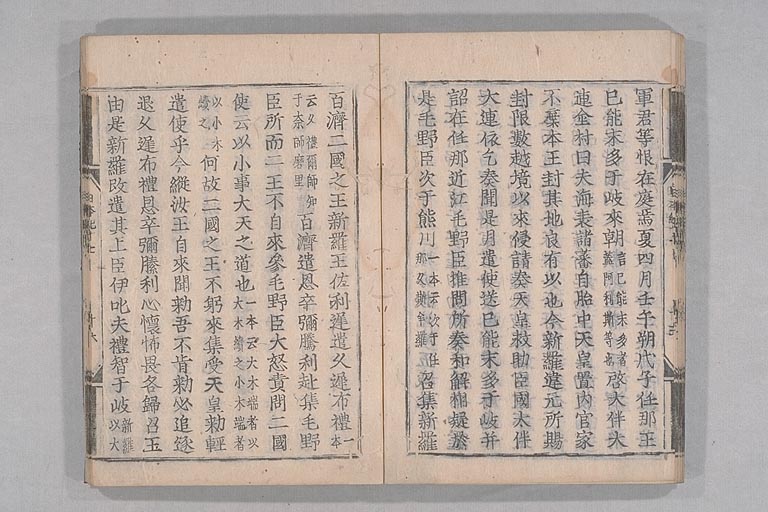 軍君等恨在庭焉夏四月壬午朔戊子任那王
己能末多干岐來朝言己能末多者蓋阿利斯等也啓大伴大
連金村曰夫海表諸蕃自胎中天皇置内官家
不棄本王封其地良有以也今新羅違元所賜
封限數越境以來侵請奏天皇救助臣國大伴
大連依乞奏聞是月遣使送己能末多干岐并
詔在任那近江毛野臣推問所奏和解相疑於
是毛野臣次于熊川一本云次于任那久斯牟羅召集新羅
百濟二國之王新羅王佐利遲遣久遲布禮一本
云久禮爾師知于奈師磨里百濟遣恩率彌騰利赴集毛野
臣所而二王不自來參毛野臣大怒責問二國
使云以小事大天之道也一本云大木端者以大木續之小木端者
以小木續之何故二國之王不躬來集受天皇勅輕
遣使乎今縱汝王自來聞勅吾不肯勅必追逐
退久遲布禮恩率彌騰利心懷怖畏各歸召王
由是新羅改遣其上臣伊叱夫禮智干岐新羅以大